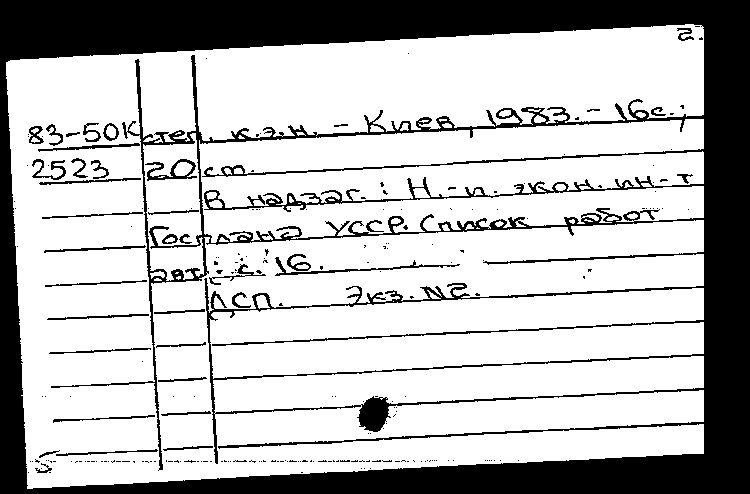 2.
83-50К степ. к.э.н. - Киев, 1983. - 16с.;
2523 20 см.
В надзаг.: Н.-и. экон. ин-т
Госплана УССР. Список работ
авт.: с. 16.
ДСП. Экз. №2.
5